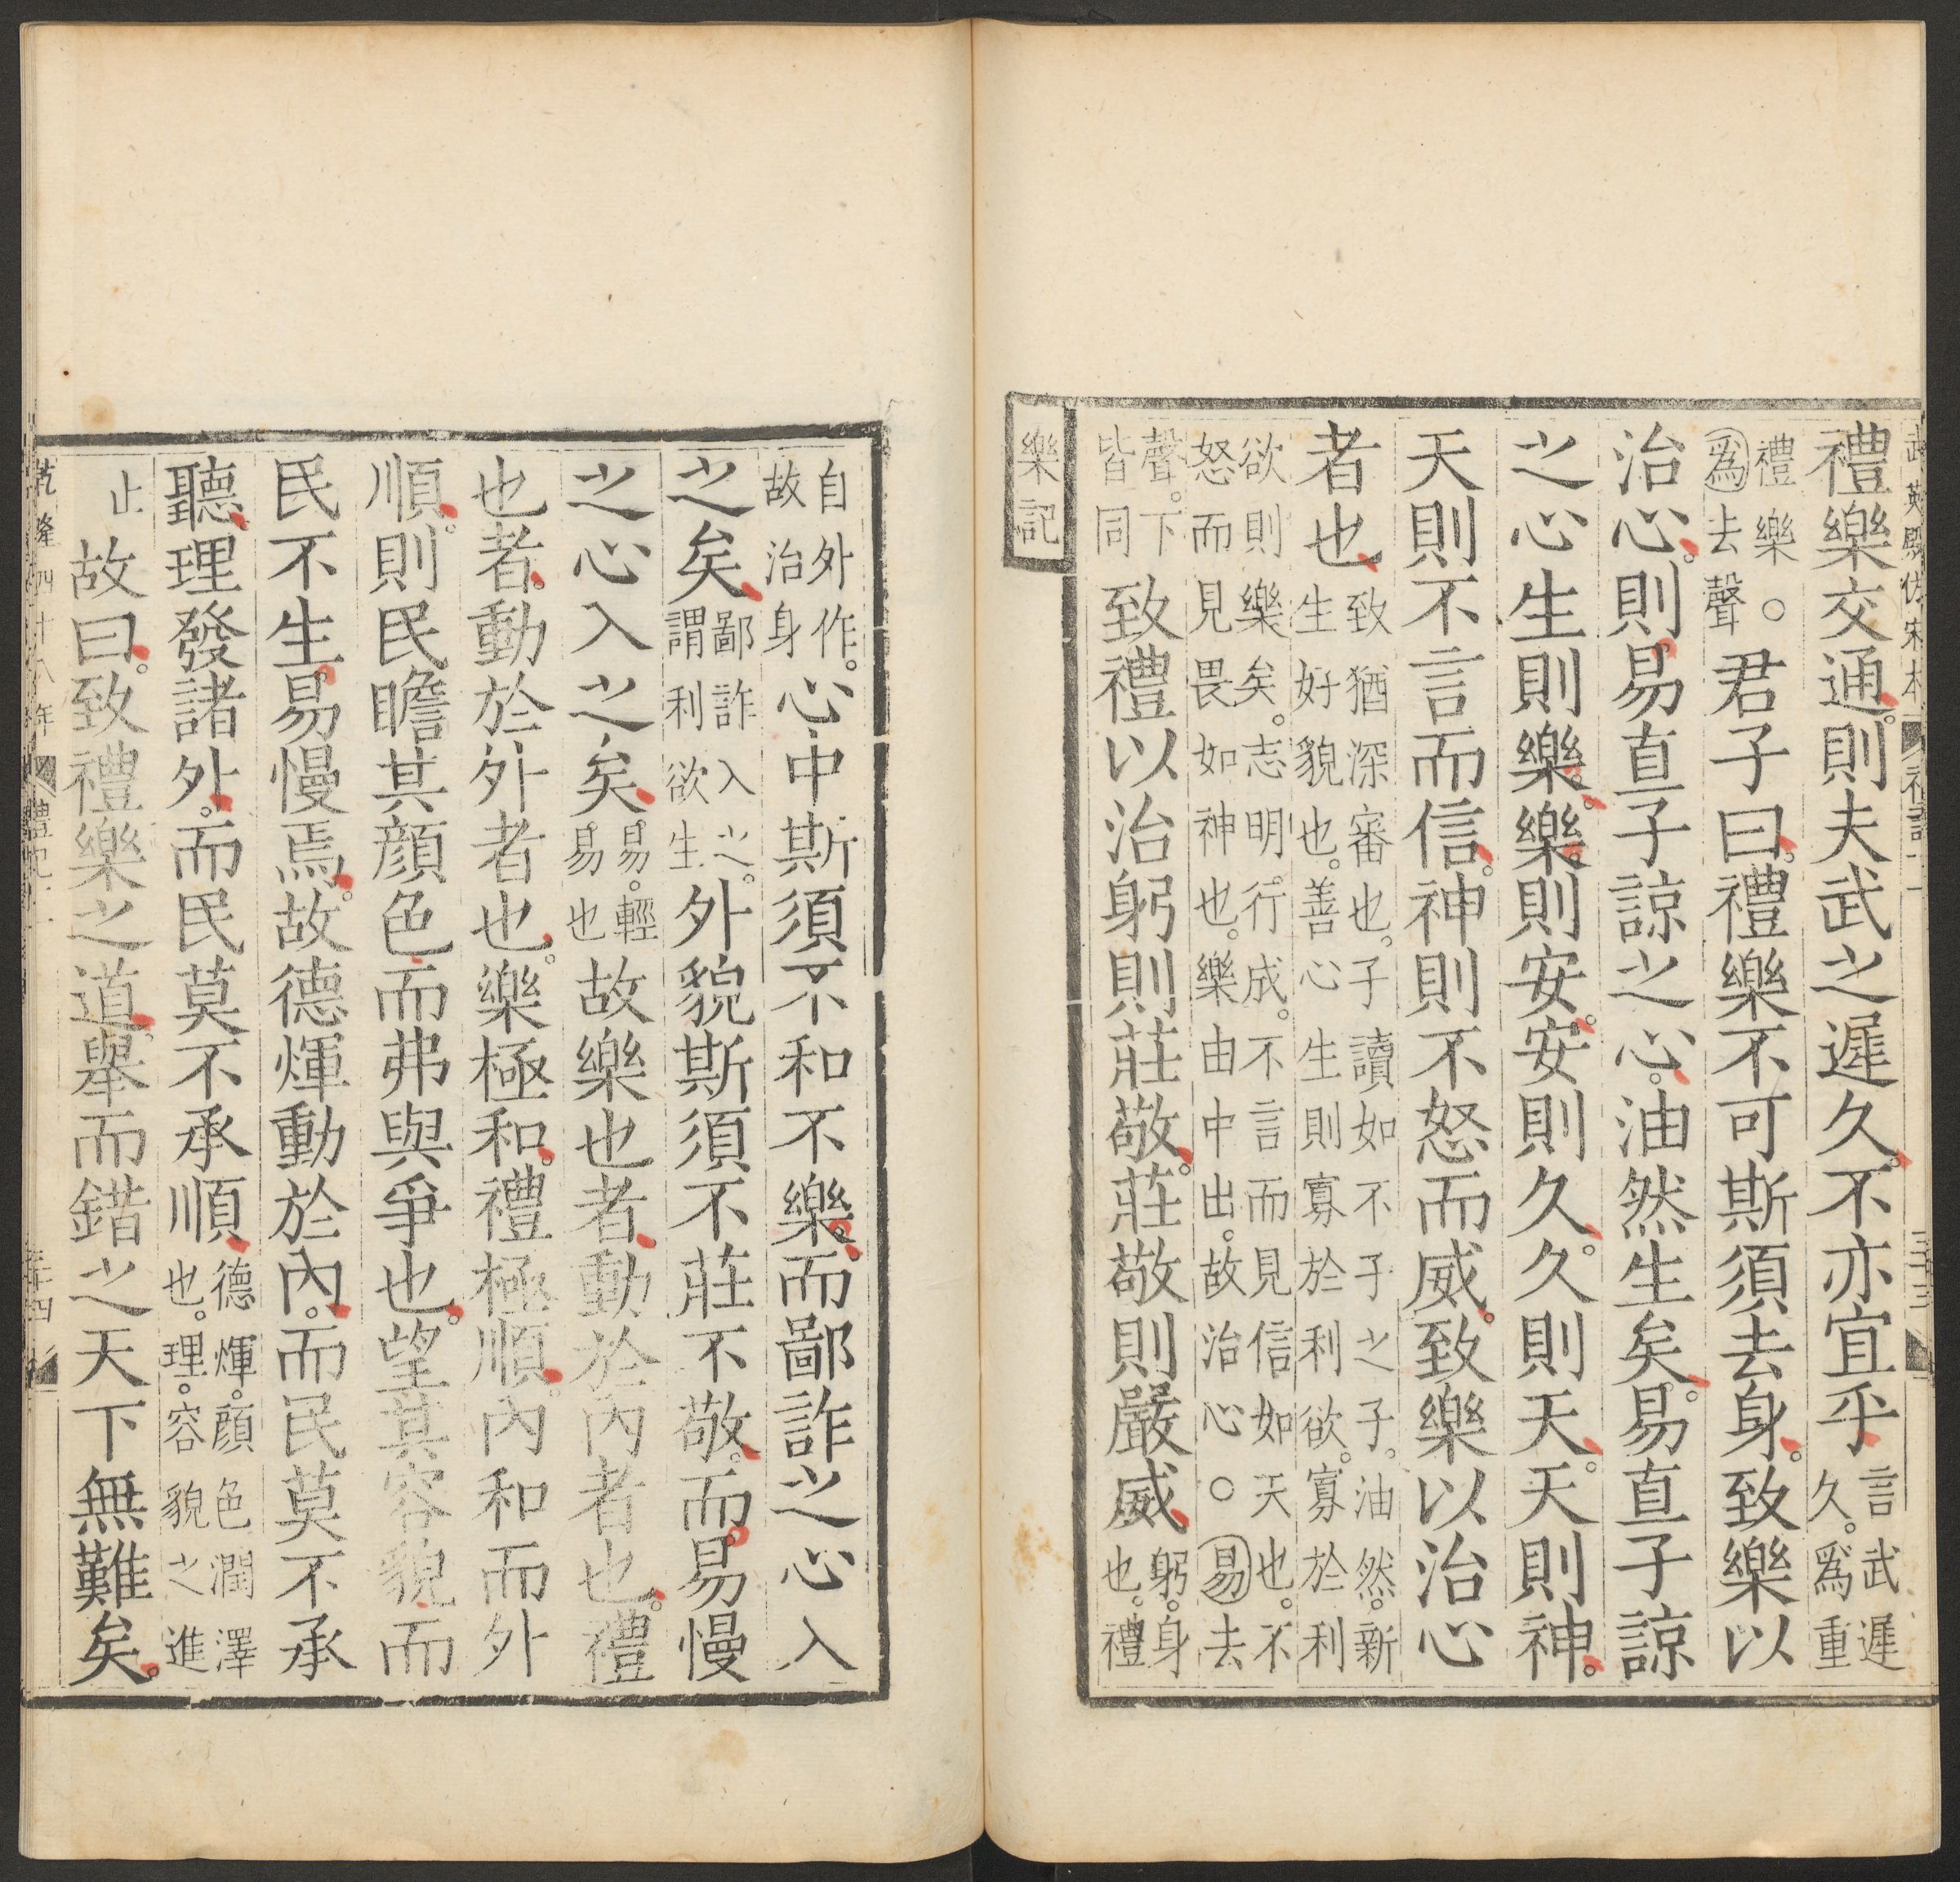 武英殿仿宋本
禮樂交通。則夫武之遲久。不亦宜乎言武遲久。爲重
禮樂○爲去聲君子曰。禮樂不可斯須去身。致樂以
治心。則易直子諒之心。油然生矣。易直子諒
之心生則樂。樂則安。安則久。久則天。天則神。
天則不言而信。神則不怒而威。致樂以治心
者也致猶深審也。子讀如不子之子。油然。新生好貌也。善心生則寡於利欲。寡於利
欲則樂矣。志明行成。不言而見信如天也。不怒而見畏如神也。樂由中出。故治心○易去
聲。下皆同致禮以治躬則莊敬。莊敬則嚴威躬。身也。禮
樂記
自外作。故治身心中斯須不和不樂。而鄙詐之心入
之矣鄙詐入之。謂利欲生外貌斯須不莊不敬。而易慢
之心入之矣易。輕易也故樂也者動於內者也。禮
也者。動於外者也。樂極和。禮極順。內和而外
順。則民瞻其顏色而弗與爭也。望其容貌而
民不生易慢焉。故德煇動於內。而民莫不承
聽。理發諸外。而民莫不承順德煇。顏色潤澤也。理。容貌之進
止故曰。致禮樂之道。舉而錯之天下無難矣。
乾隆四十八年
禮記十一
三十四